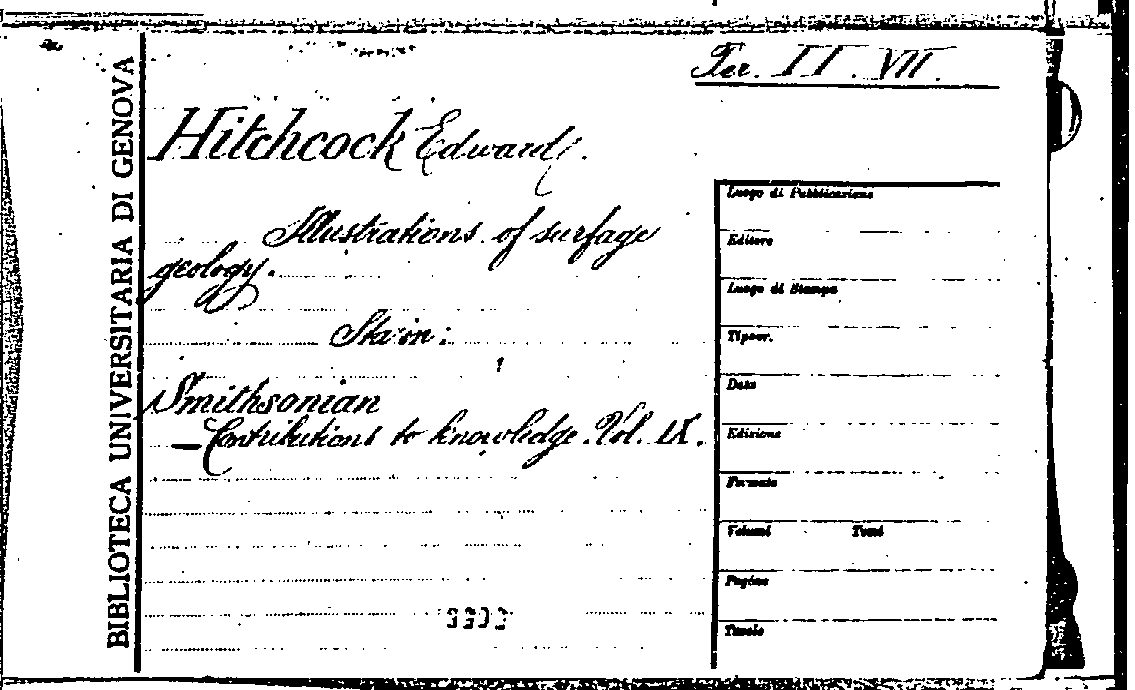 Per. II. VII.
BIBLIOTECA UNIVERSITARIA DI GENOVA
Hitchcock Edward.
Illustrations of surfage
geology.
Sta in:
Smithsonian
Contributions to knowledge. Vol. IX.
Luogo di Pubblicazione
Editore
Luogo di Stampa
Tipogr.
Data
Edizione
Formato
Volumi Tomi
Pagine
Tavole